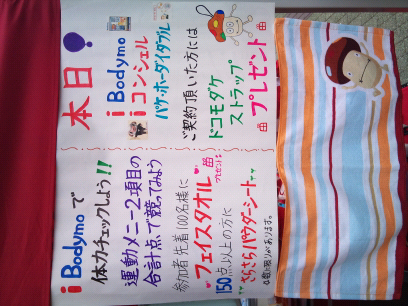 i Bodymoで
体力チェックしよう!!
運動メニュー2項目の
合計点で競ってみよう
参加者先着100名様に
"フェイスタオル"
プレゼント
150点以上の方に
"さらさらパウダーシート"
数に限りがあります。
本日
i Bodymo
iコンシェル
パケ・ホーダイダブル
ご契約頂いた方には
ドコモダケ
ストラップ
プレゼント